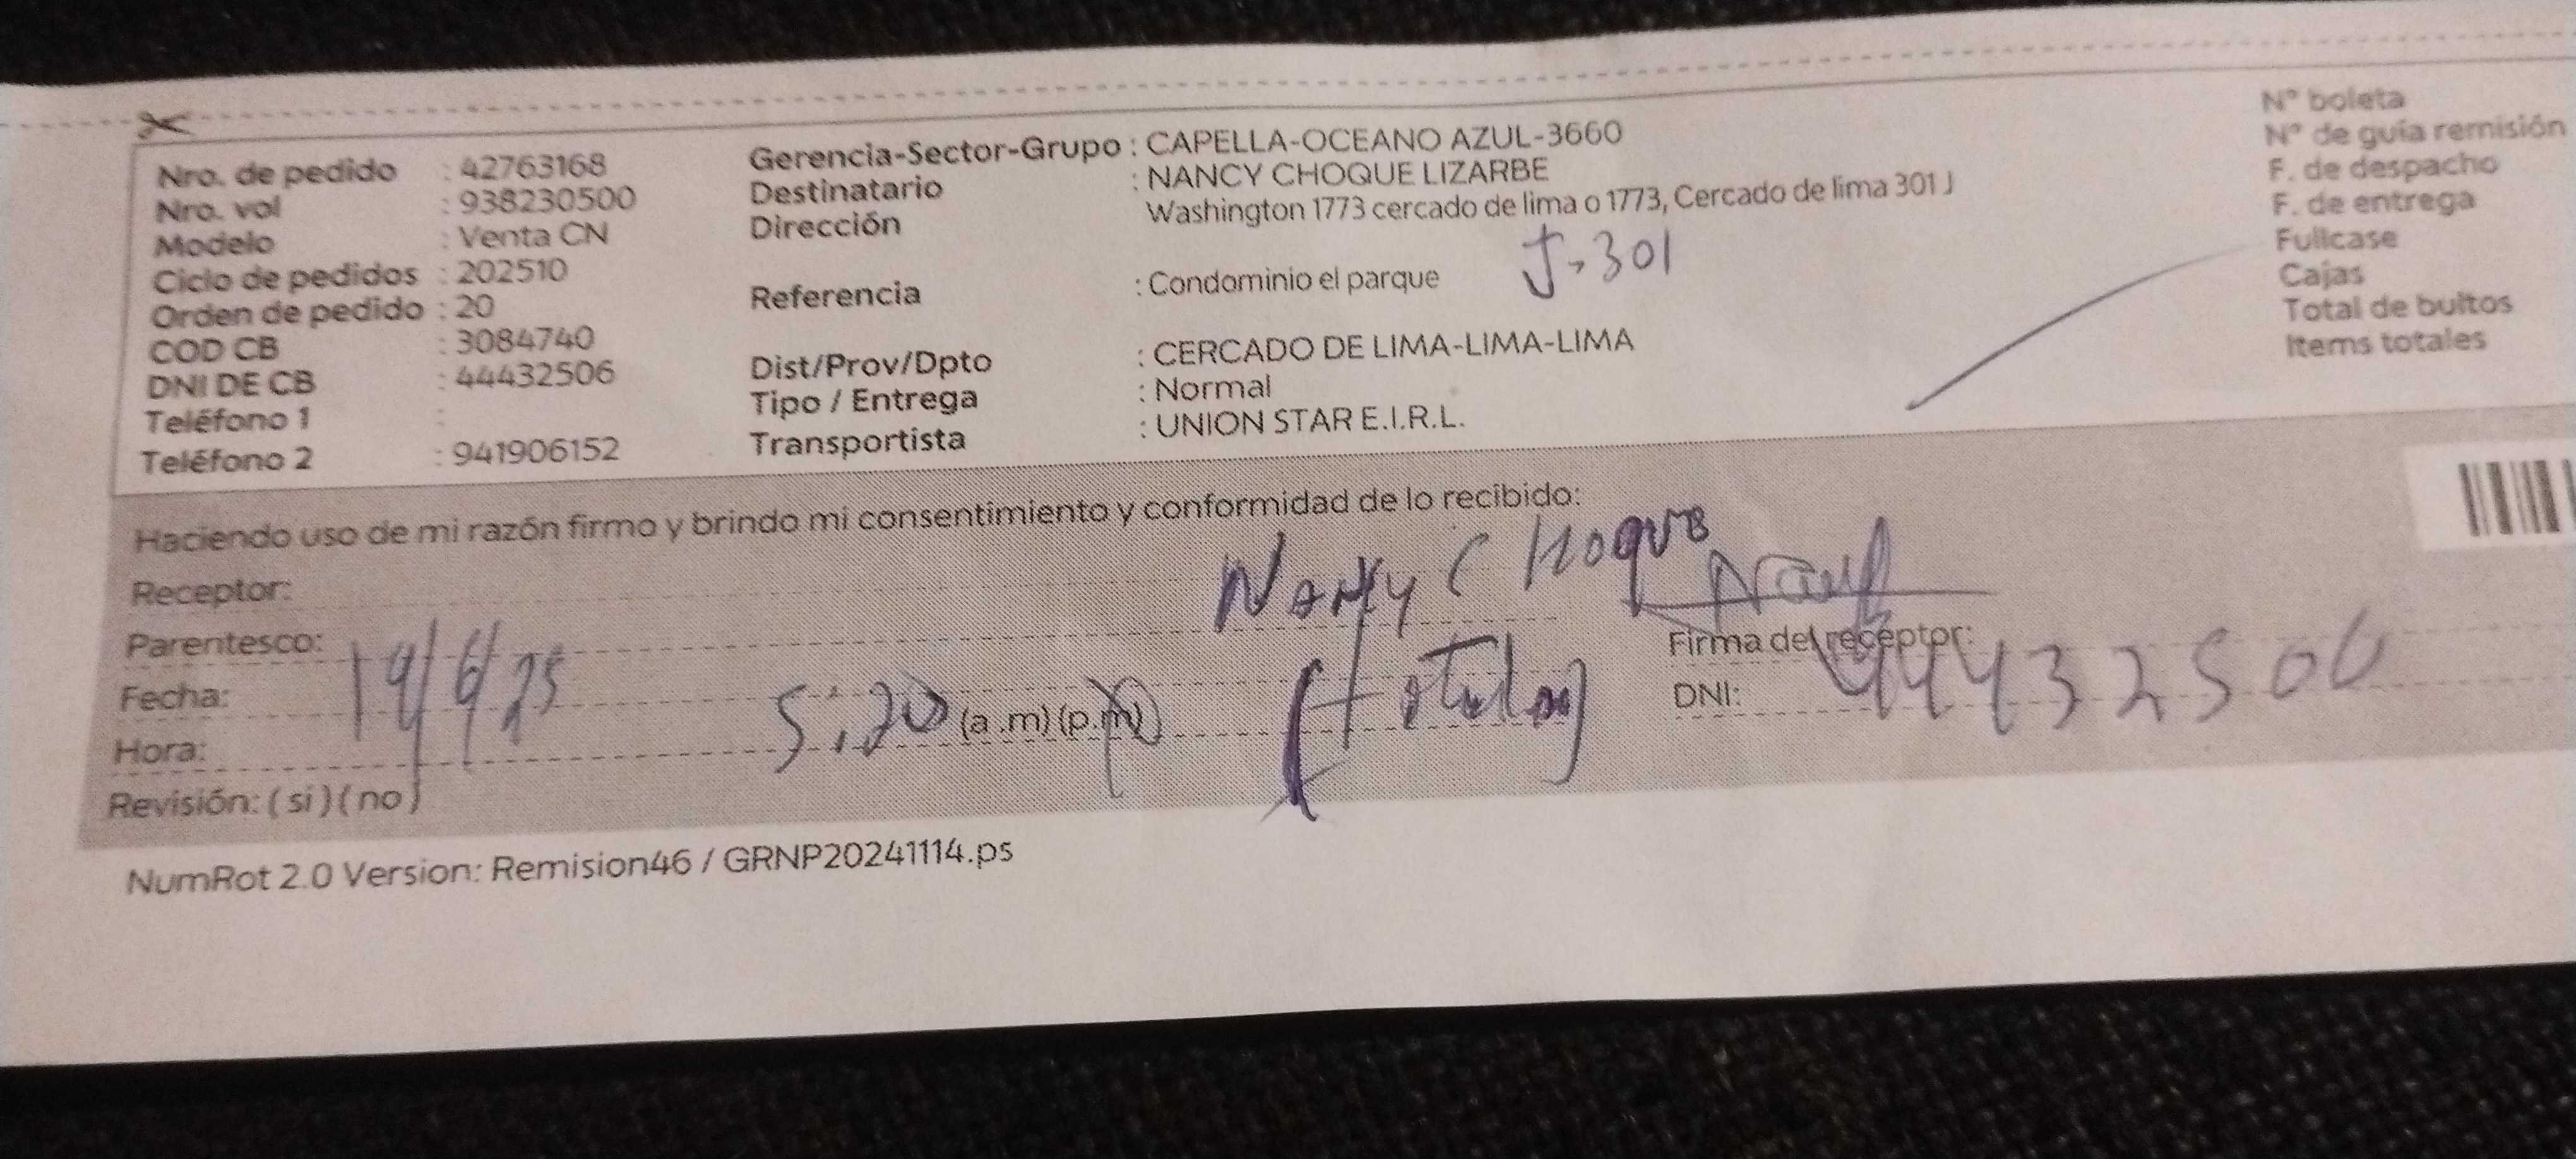 Nro. de pedido : 42763168
Nro. vol : 938230500
Modelo : Venta CN
Ciclo de pedidos : 202510
Orden de pedido : 20
COD CB : 3084740
DNI DE CB : 44432506
Teléfono 1 :
Teléfono 2 : 941906152
Gerencia-Sector-Grupo : CAPELLA-OCEANO AZUL-3660
Destinatario : NANCY CHOQUE LIZARBE
Dirección Washington 1773 cercado de lima o 1773, Cercado de lima 301 J
J-301
Referencia : Condominio el parque
Dist/Prov/Dpto : CERCADO DE LIMA-LIMA-LIMA
Tipo / Entrega : Normal
Transportista : UNION STAR E.I.R.L.
N° boleta
N° de guía remisión
F. de despacho
F. de entrega
Fullcase
Cajas
Total de bultos
Items totales
Haciendo uso de mi razón firmo y brindo mi consentimiento y conformidad de lo recibido:
Receptor: Nancy CHoque
Parentesco:
Fecha: 19/6/25
Hora: 5:20 (a .m) (p.m)
Revisión: ( si ) ( no )
Firma del receptor:
DNI: 44432506
NumRot 2.0 Version: Remision46 / GRNP20241114.ps